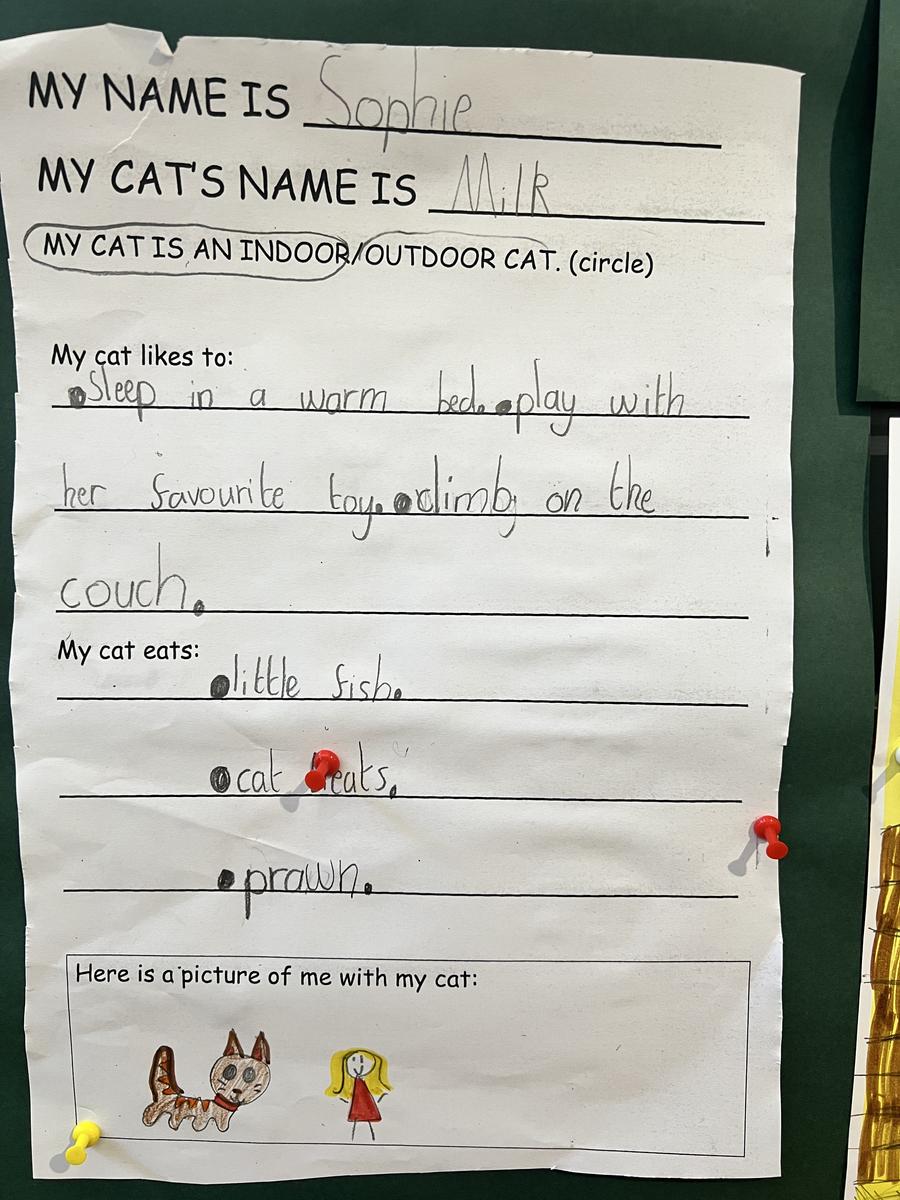 MY NAME IS Sophie
MY CAT'S NAME IS Milk
MY CAT IS AN INDOOR/OUTDOOR CAT. (circle)
My cat likes to:
•Sleep in a warm bed. •play with
her favourite toy. •climb on the
couch.
My cat eats:
•little fish.
•cat
•prawn.
Here is a picture of me with my cat: